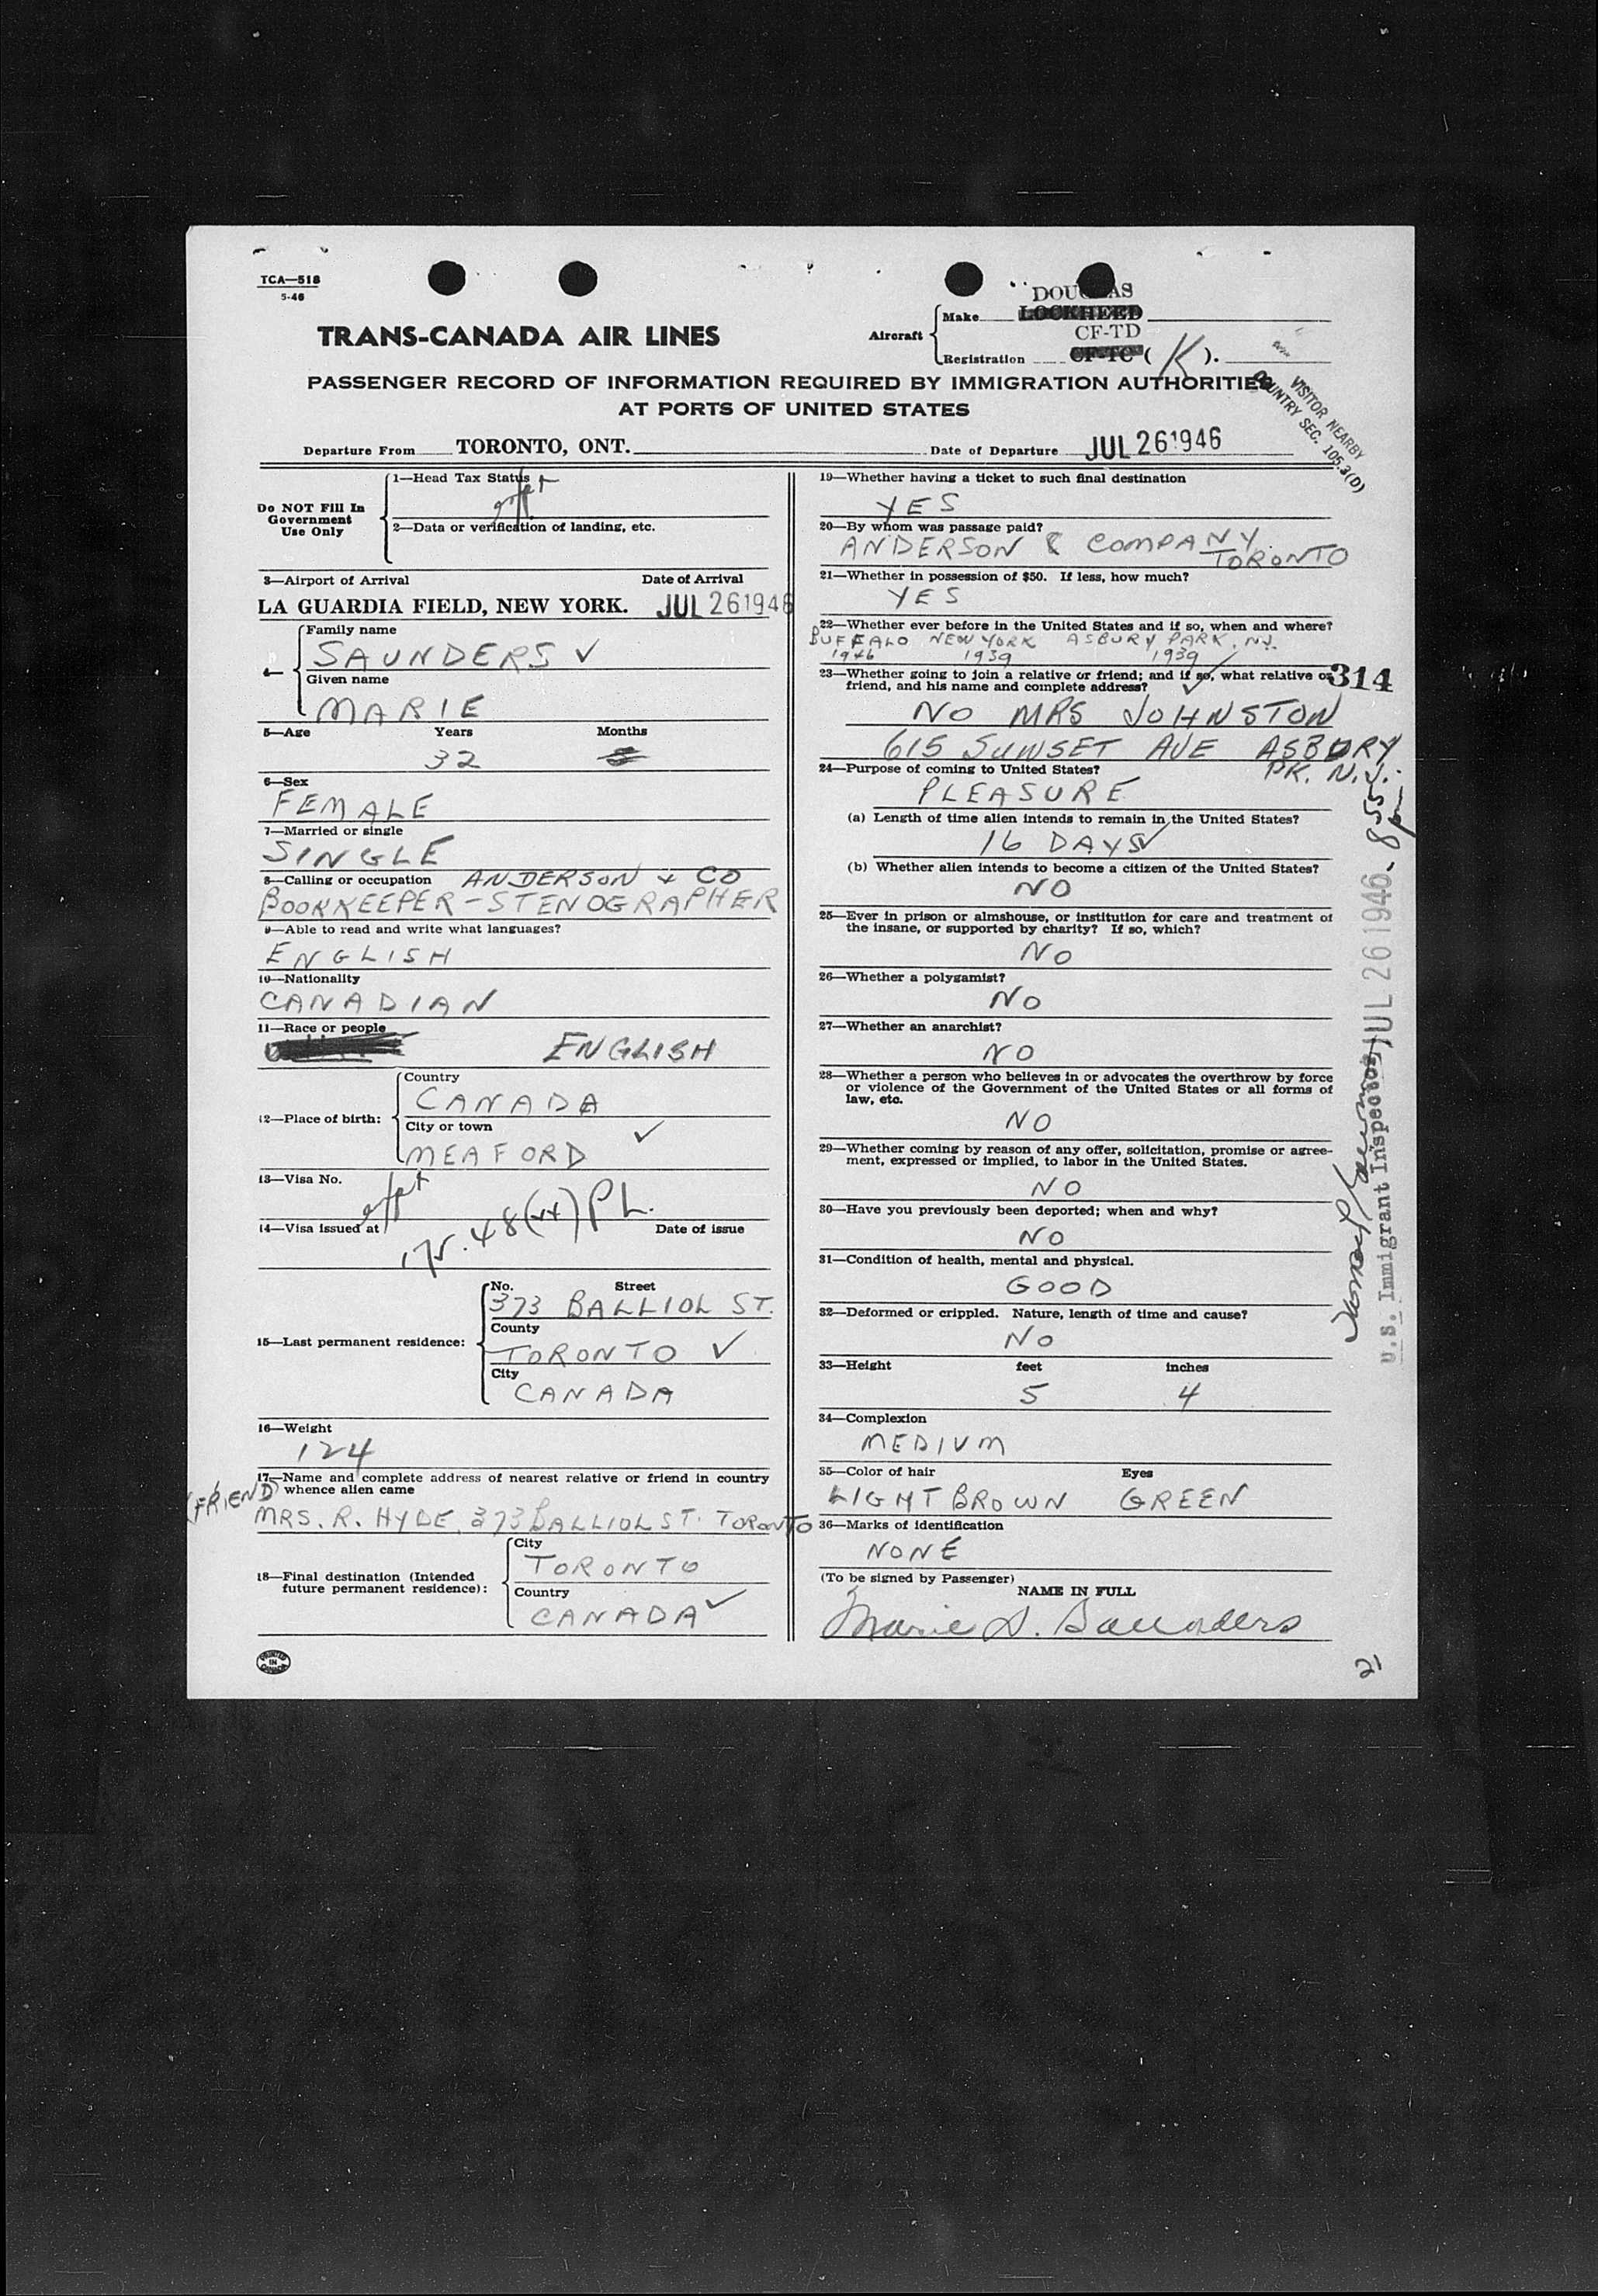 TCA—518
5-46
DOUGLAS
Aircraft
Make LOCKHEED
CF-TD
Registration CF-TC ( K ).
TRANS-CANADA AIR LINES
PASSENGER RECORD OF INFORMATION REQUIRED BY IMMIGRATION AUTHORITIES
AT PORTS OF UNITED STATES
VISITOR NEARBY
COUNTRY SEC. 105.3(D)
Departure From TORONTO, ONT. Date of Departure JUL 26 1946
Do NOT Fill In
Government
Use Only
1—Head Tax Status
2—Data or verification of landing, etc.
3—Airport of Arrival Date of Arrival
LA GUARDIA FIELD, NEW YORK. JUL 26 1946
4—
Family name
SAUNDERS ✓
Given name
MARIE
5—Age Years Months
32
6—Sex
FEMALE
7—Married or single
SINGLE
8—Calling or occupation ANDERSON + CO
BOOKKEEPER-STENOGRAPHER
9—Able to read and write what languages?
ENGLISH
10—Nationality
CANADIAN
11—Race or people
ENGLISH
12—Place of birth:
Country
CANADA
City or town
MEAFORD ✓
13—Visa No.
14—Visa issued at Date of issue
15—Last permanent residence:
No. Street
373 BALLIOL ST.
County
TORONTO ✓
City
CANADA
16—Weight
124
17—Name and complete address of nearest relative or friend in country
whence alien came
(FRIEND)
MRS. R. HYDE, 373 BALLIOL ST. TORONTO
18—Final destination (Intended
future permanent residence):
City
TORONTO
Country
CANADA ✓
PRINTED
IN
CANADA
19—Whether having a ticket to such final destination
YES
20—By whom was passage paid?
ANDERSON & COMPANY
TORONTO
21—Whether in possession of $50. If less, how much?
YES
22—Whether ever before in the United States and if so, when and where?
BUFFALO NEW YORK ASBURY PARK. N.J.
1946 1939 1939
23—Whether going to join a relative or friend; and if so, what relative or
friend, and his name and complete address?
314
NO MRS JOHNSTON
615 SUNSET AVE ASBURY
PK. N.J.
24—Purpose of coming to United States?
PLEASURE
(a) Length of time alien intends to remain in the United States?
16 DAYS ✓
(b) Whether alien intends to become a citizen of the United States?
NO
25—Ever in prison or almshouse, or institution for care and treatment of
the insane, or supported by charity? If so, which?
NO
26—Whether a polygamist?
NO
27—Whether an anarchist?
NO
28—Whether a person who believes in or advocates the overthrow by force
or violence of the Government of the United States or all forms of
law, etc.
NO
29—Whether coming by reason of any offer, solicitation, promise or agree-
ment, expressed or implied, to labor in the United States.
NO
30—Have you previously been deported; when and why?
NO
31—Condition of health, mental and physical.
GOOD
32—Deformed or crippled. Nature, length of time and cause?
NO
33—Height feet inches
5 4
34—Complexion
MEDIUM
35—Color of hair Eyes
LIGHT BROWN GREEN
36—Marks of identification
NONE
(To be signed by Passenger)
NAME IN FULL
Marie S. Saunders
JUL 26 1946 - 8 55 pm
U.S. Immigrant Inspector
21